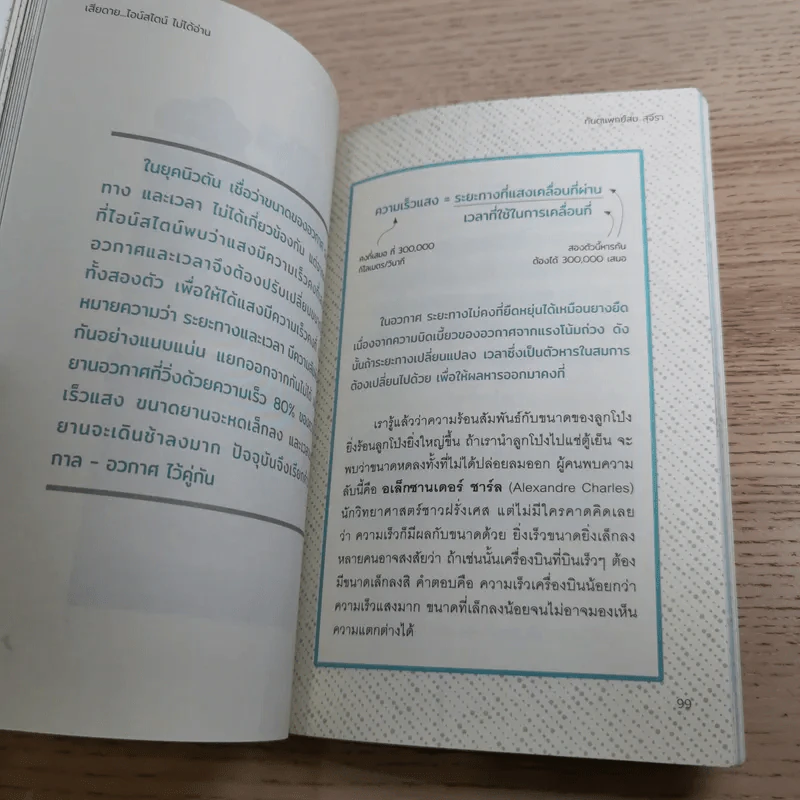 เสียดาย...ไอน์สไตน์ ไม่ได้อ่าน
ในยุคนิวตัน เชื่อว่าขนาดของอวกาศ
ทาง และเวลา ไม่ได้เกี่ยวข้องกัน
ที่ไอน์สไตน์พบว่าแสงมีความเร็วคงที่
อวกาศและเวลาจึงต้องปรับเปลี่ยน
ทั้งสองตัว เพื่อให้ได้แสงมีความเร็วคงที่
หมายความว่า ระยะทางและเวลา มีความ
กันอย่างแนบแน่น แยกออกจากกันไม่ได้
ยานอวกาศที่วิ่งด้วยความเร็ว 80%
เร็วแสง ขนาดยานจะหดเล็กลง และ
ยานจะเดินช้าลงมาก ปัจจุบันจึงเรียก
กาล - อวกาศ ไว้คู่กัน
ทันตแพทย์สม สุจีรา
ความเร็วแสง = ระยะทางที่แสงเคลื่อนที่ผ่าน
เวลาที่ใช้ในการเคลื่อนที่
คงที่เสมอ ที่ 300,000
กิโลเมตร/วินาที
สองตัวนี้หารกัน
ต้องได้ 300,000 เสมอ
ในอวกาศ ระยะทางไม่คงที่ยืดหยุ่นได้เหมือนยางยืด
เนื่องจากความบิดเบี้ยวของอวกาศจากแรงโน้มถ่วง ดัง
นั้นถ้าระยะทางเปลี่ยนแปลง เวลาซึ่งเป็นตัวหารในสมการ
ต้องเปลี่ยนไปด้วย เพื่อให้ผลหารออกมาคงที่
เรารู้แล้วว่าความร้อนสัมพันธ์กับขนาดของลูกโป่ง
ยิ่งร้อนลูกโป่งยิ่งใหญ่ขึ้น ถ้าเรานำลูกโป่งไปแช่ตู้เย็น จะ
พบว่าขนาดหดลงทั้งที่ไม่ได้ปล่อยลมออก ผู้คนพบความ
ลับนี้คือ อเล็กซานเดอร์ ชาร์ล (Alexandre Charles)
นักวิทยาศาสตร์ชาวฝรั่งเศส แต่ไม่มีใครคาดคิดเลย
ว่า ความเร็วก็มีผลกับขนาดด้วย ยิ่งเร็วขนาดยิ่งเล็กลง
หลายคนอาจสงสัยว่า ถ้าเช่นนั้นเครื่องบินที่บินเร็วๆ ต้อง
มีขนาดเล็กลงสิ คำตอบคือ ความเร็วเครื่องบินน้อยกว่า
ความเร็วแสงมาก ขนาดที่เล็กลงน้อยจนไม่อาจมองเห็น
ความแตกต่างได้
99